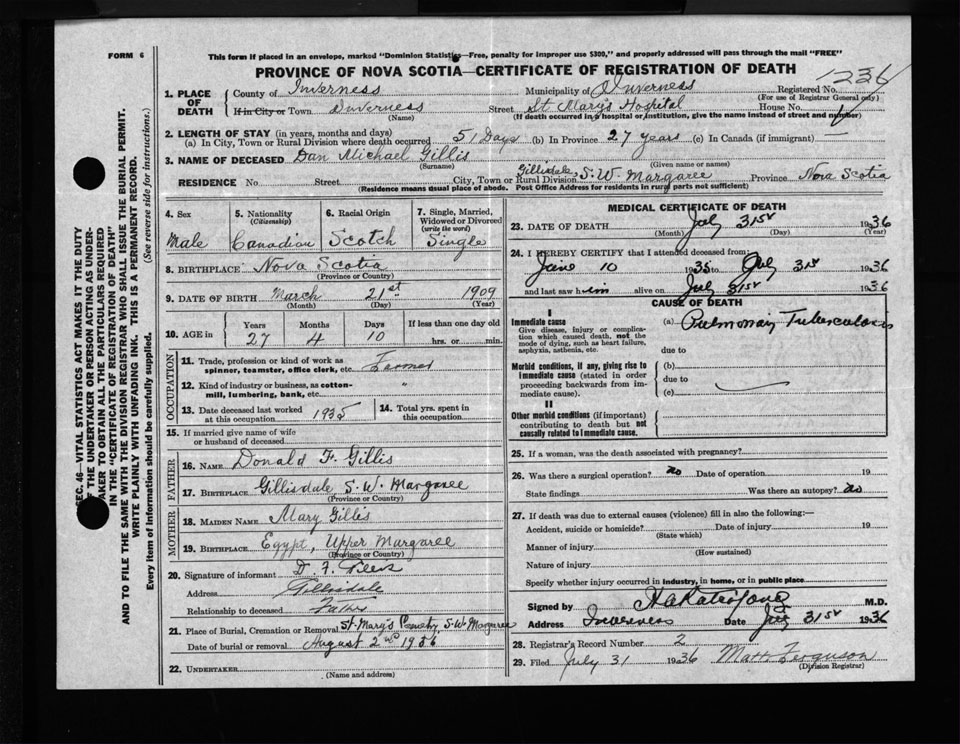 FORM 6
This form if placed in an envelope, marked "Dominion Statistics—Free, penalty for improper use $300," and properly addressed will pass through the mail "FREE"
PROVINCE OF NOVA SCOTIA—CERTIFICATE OF REGISTRATION OF DEATH
1236
1. PLACE OF DEATH County of Inverness Municipality of Inverness Registered No.
(For use of Registrar General only)
If in City or Town Inverness Street St. Mary's Hospital House No.
(Name) (If death occurred in a hospital or institution, give the name instead of street and number)
2. LENGTH OF STAY (in years, months and days)
(a) In City, Town or Rural Division where death occurred 51 Days (b) In Province 27 years (c) In Canada (if immigrant) —
3. NAME OF DECEASED Dan Michael Gillis
(Surname) (Given name or names)
RESIDENCE No. Street City, Town or Rural Division Gillisdale S. W. Margaree Province Nova Scotia
(Residence means usual place of abode. Post Office Address for residents in rural parts not sufficient)
4. Sex Male
5. Nationality (Citizenship) Canadian
6. Racial Origin Scotch
7. Single, Married, Widowed or Divorced (write the word) Single
8. BIRTHPLACE Nova Scotia
(Province or Country)
9. DATE OF BIRTH March 21st 1909
(Month) (Day) (Year)
10. AGE in Years Months Days If less than one day old
27 4 10 hrs. or min.
OCCUPATION
11. Trade, profession or kind of work as spinner, teamster, office clerk, etc. Farmer
12. Kind of industry or business, as cotton-mill, lumbering, bank, etc. "
13. Date deceased last worked at this occupation 1935
14. Total yrs. spent in this occupation
15. If married give name of wife or husband of deceased
FATHER
16. NAME Donald F. Gillis
17. BIRTHPLACE Gillisdale S. W. Margaree
(Province or Country)
MOTHER
18. MAIDEN NAME Mary Gillis
19. BIRTHPLACE Egypt, Upper Margaree
(Province or Country)
20. Signature of informant D. F.
Address Gillisdale
Relationship to deceased Father
21. Place of Burial, Cremation or Removal St. Mary's S.W. Margaree
Date of burial or removal August 2nd 1936
22. UNDERTAKER
(Name and address)
MEDICAL CERTIFICATE OF DEATH
23. DATE OF DEATH July 31st 1936
(Month) (Day) (Year)
24. I HEREBY CERTIFY that I attended deceased from:
June 10 1935 to July 31st 1936
and last saw him alive on July 31st 1936
CAUSE OF DEATH
I
Immediate cause
Give disease, injury or complication which caused death, not the mode of dying, such as heart failure, asphyxia, asthenia, etc.
(a) Pulmonary Tuberculosis
due to
Morbid conditions, if any, giving rise to immediate cause (stated in order proceeding backwards from immediate cause).
(b)
due to
(c)
II
Other morbid conditions (if important) contributing to death but not causally related to immediate cause.
25. If a woman, was the death associated with pregnancy?
26. Was there a surgical operation? no Date of operation 19
State findings Was there an autopsy? no
27. If death was due to external causes (violence) fill in also the following:—
Accident, suicide or homicide? Date of injury 19
(State which)
Manner of injury
(How sustained)
Nature of injury
Specify whether injury occurred in industry, in home, or in public place
Signed by M.D.
Address Inverness Date July 31st 1936
28. Registrar's Record Number 2
29. Filed July 31 1936 Matt. Ferguson
(Division Registrar)
SEC. 46—VITAL STATISTICS ACT MAKES IT THE DUTY
OF THE UNDERTAKER OR PERSON ACTING AS UNDER-
TAKER TO OBTAIN ALL THE PARTICULARS REQUIRED
IN THE "CERTIFICATE OF REGISTRATION OF DEATH"
AND TO FILE THE SAME WITH THE DIVISION REGISTRAR WHO SHALL ISSUE THE BURIAL PERMIT.
WRITE PLAINLY WITH UNFADING INK. THIS IS A PERMANENT RECORD.
Every item of information should be carefully supplied. (See reverse side for instructions.)